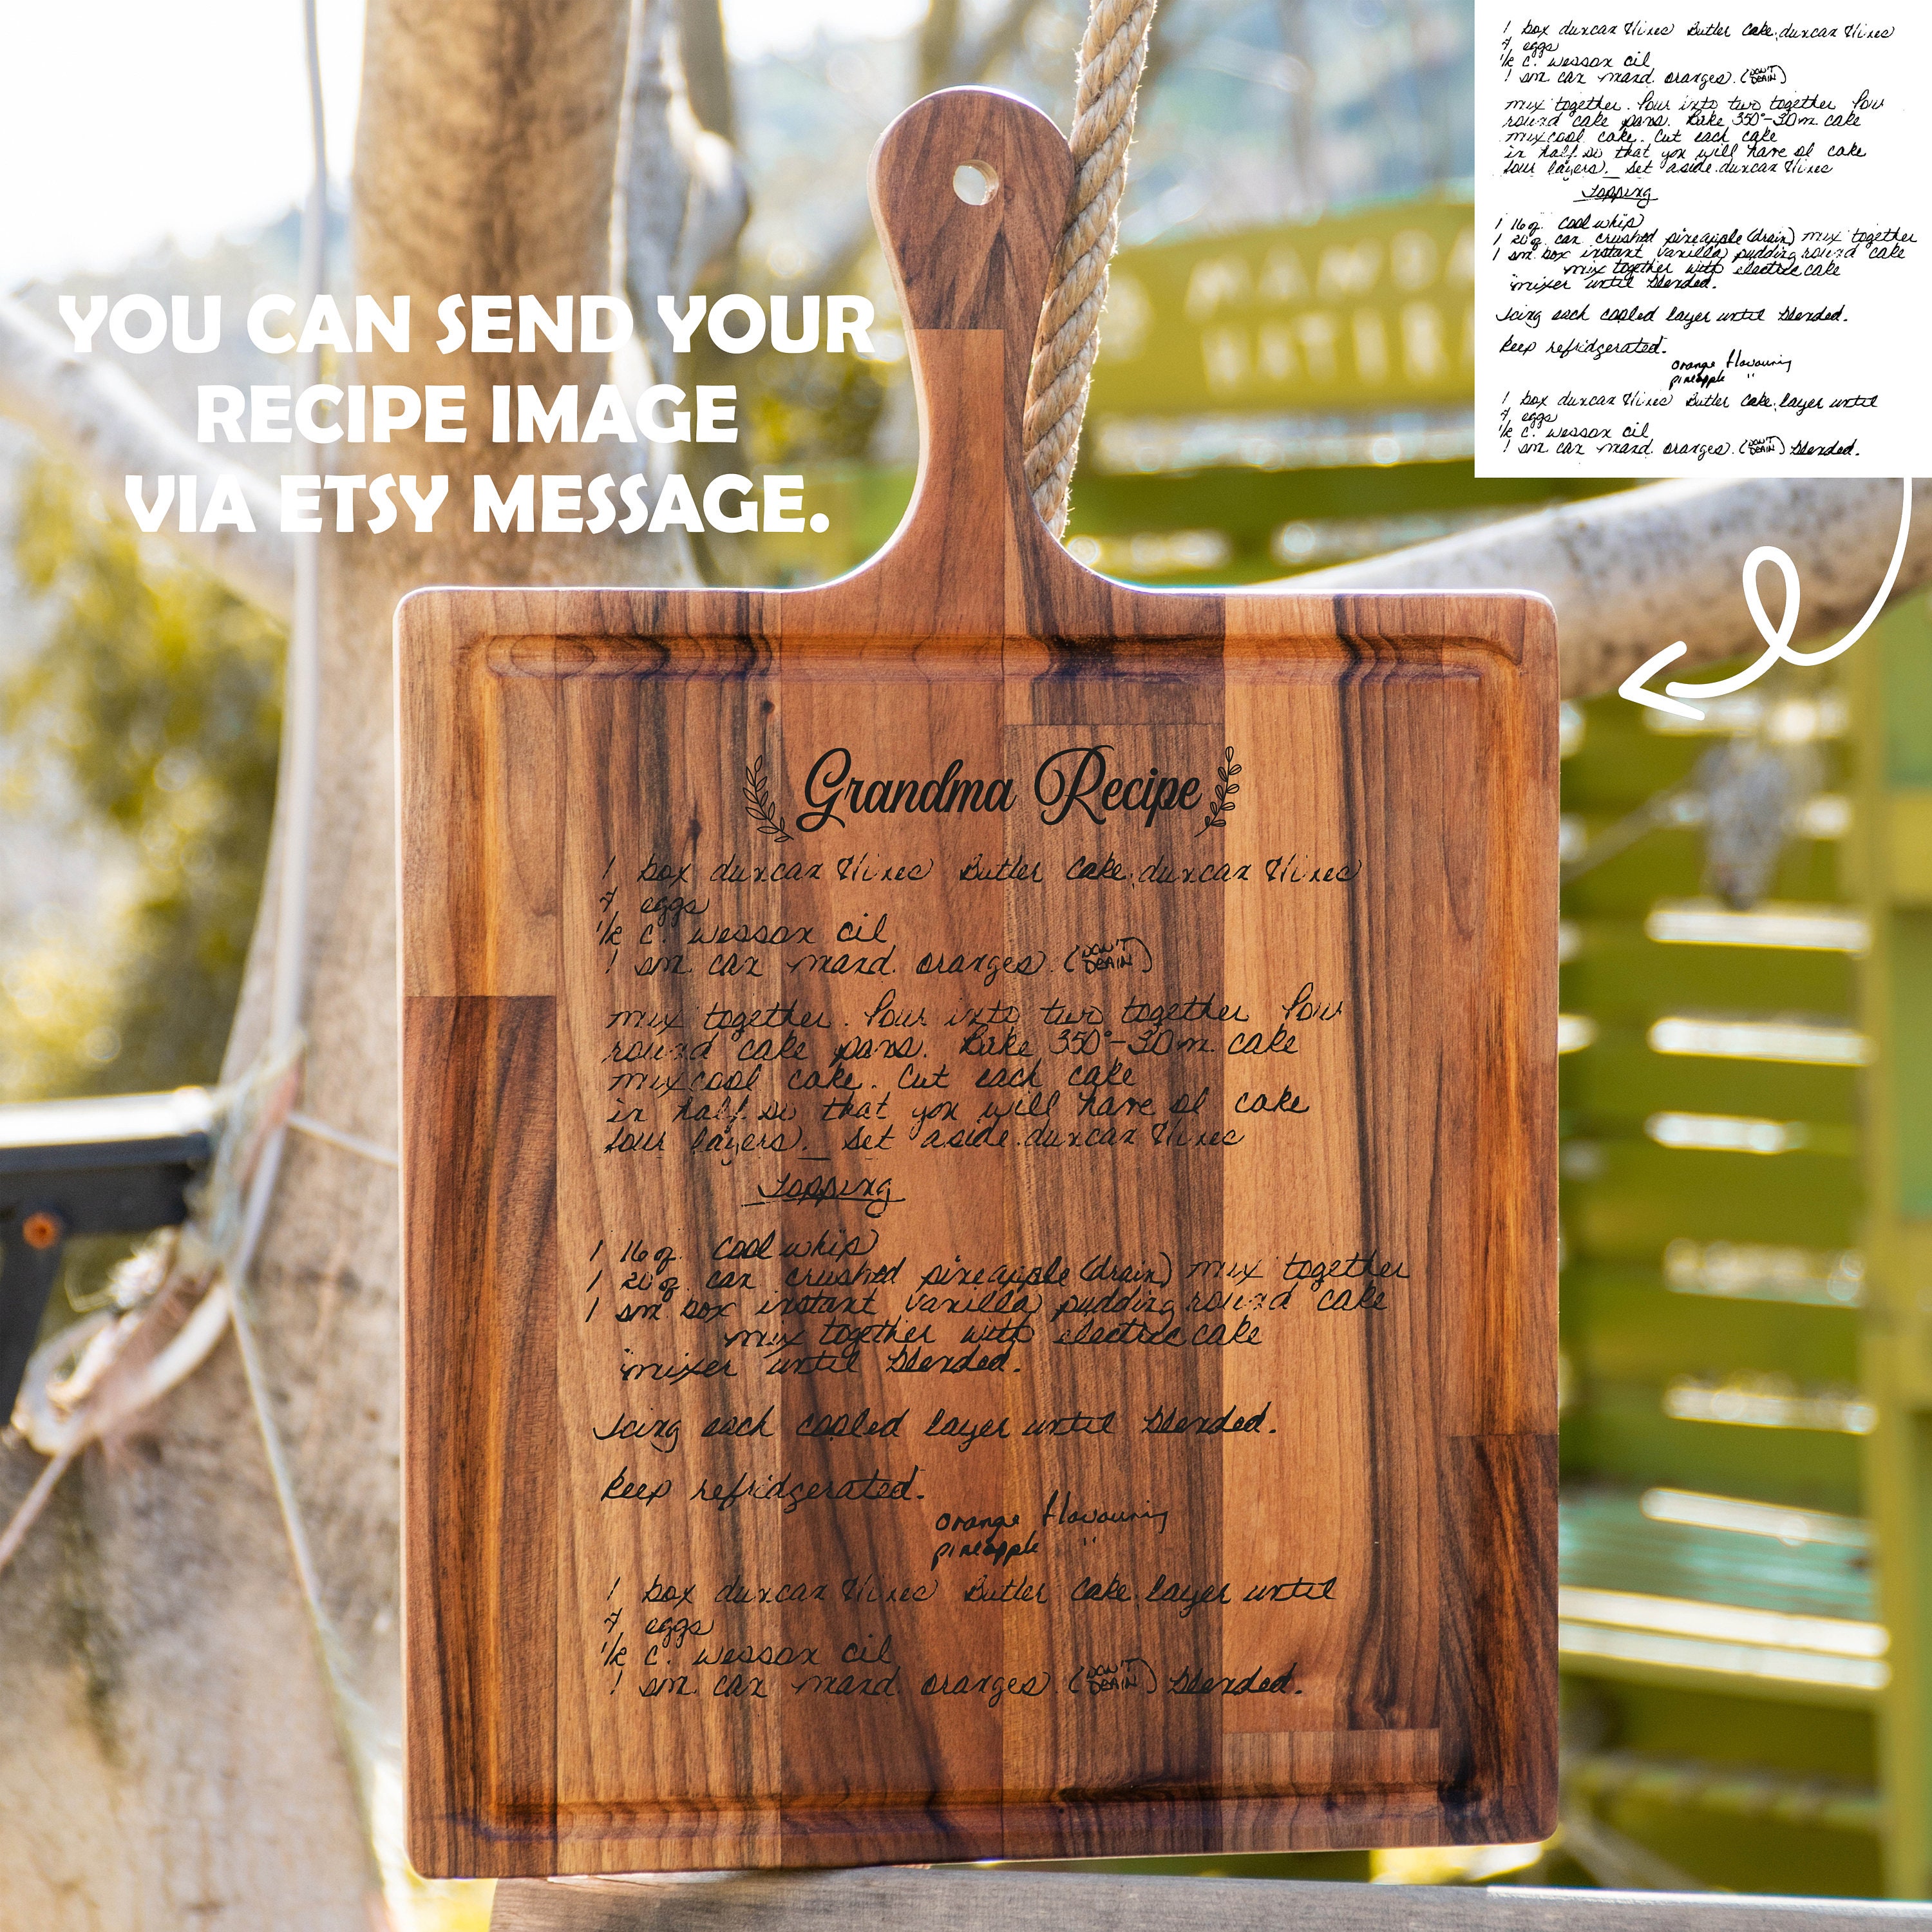 YOU CAN SEND YOUR
RECIPE IMAGE
VIA ETSY MESSAGE.
1 box duncan Hines Butter Cake. duncan Hines
4 eggs
1/2 c. wesson oil
1 sm. can mand. oranges. (DON'T DRAIN)
mix together. Pour into two together Pour
round cake pans. Bake 350°-30m. cake
mix cool cake. Cut each cake
in half so that you will have ol cake
four layers). Set aside. duncan Hines
Topping
1 16 oz. cool whip
1 20 oz. can crushed pineapple (drain) mix together
1 sm. box instant vanilla pudding round cake
mix together with electric cake
mixer until blended.
Icing each cooled layer until blended.
Keep refridgerated.
orange flavouring
pineapple "
1 box duncan Hines Butter Cake. layer until
4 eggs
1/2 c. wesson oil
1 sm. can mand. oranges. (DON'T DRAIN) blended.
Grandma Recipe
1 box duncan Hines Butter Cake. duncan Hines
4 eggs
1/2 c. wesson oil
1 sm. can mand. oranges. (DON'T DRAIN)
mix together. Pour into two together Pour
round cake pans. Bake 350°-30m. cake
mix cool cake. Cut each cake
in half so that you will have ol cake
four layers). Set aside. duncan Hines
Topping
1 16 oz. cool whip
1 20 oz. can crushed pineapple (drain) mix together
1 sm. box instant vanilla pudding round cake
mix together with electric cake
mixer until blended.
Icing each cooled layer until blended.
Keep refridgerated.
orange flavouring
pineapple "
1 box duncan Hines Butter Cake. layer until
4 eggs
1/2 c. wesson oil
1 sm. can mand. oranges. (DON'T DRAIN) blended.